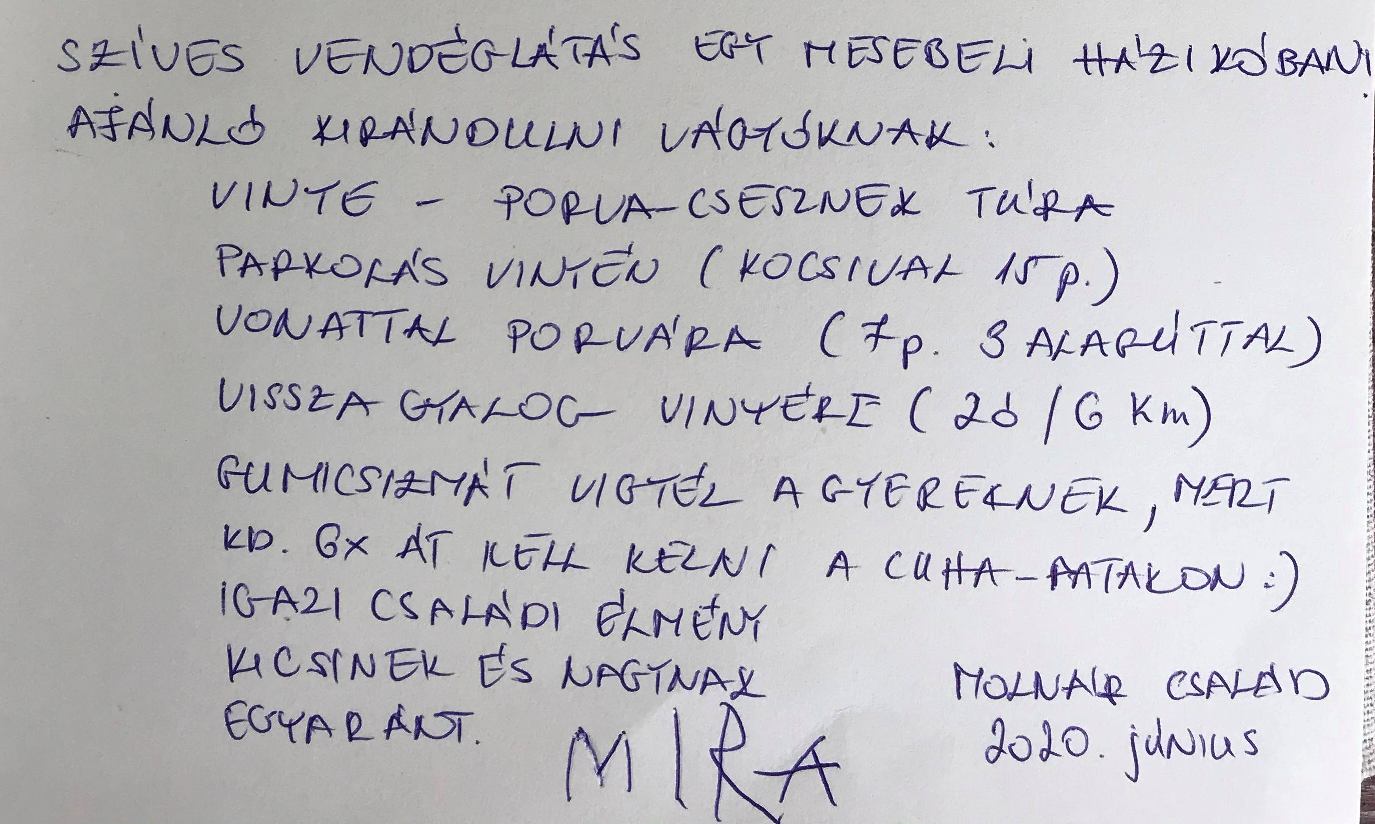 SZÍVES VENDÉGLÁTÁS EGY MESEBELI HÁZIKÓBAN!
AJÁNLÓ KIRÁNDULNI VÁGYÓKNAK:
VINYE - PORVA-CSESZNEK TÚRA
PARKOLÁS VINYÉN (KOCSIVAL 15 p.)
VONATTAL PORVÁRA (7p. 3 ALAGÚTTAL)
VISSZA GYALOG VINYÉRE (2ó/6 Km)
GUMICSIZMÁT VIGYÉL A GYEREKNEK, MERT
KB. 6x ÁT KELL KELNI A CUHA-PATAKON :)
IGAZI CSALÁDI ÉLMÉNY
KICSINEK ÉS NAGYNAK
EGYARÁNT.
MOLNÁR CSALÁD
2020. június
MIRA